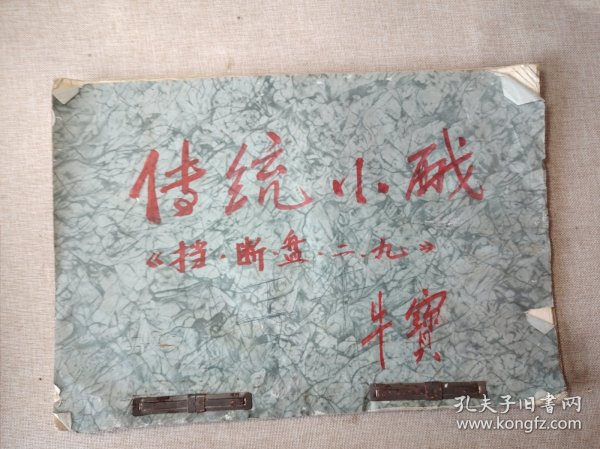 传统小戏
《挡·断·盘·二·九》
牛寶
孔夫子旧书网
www.kongfz.com